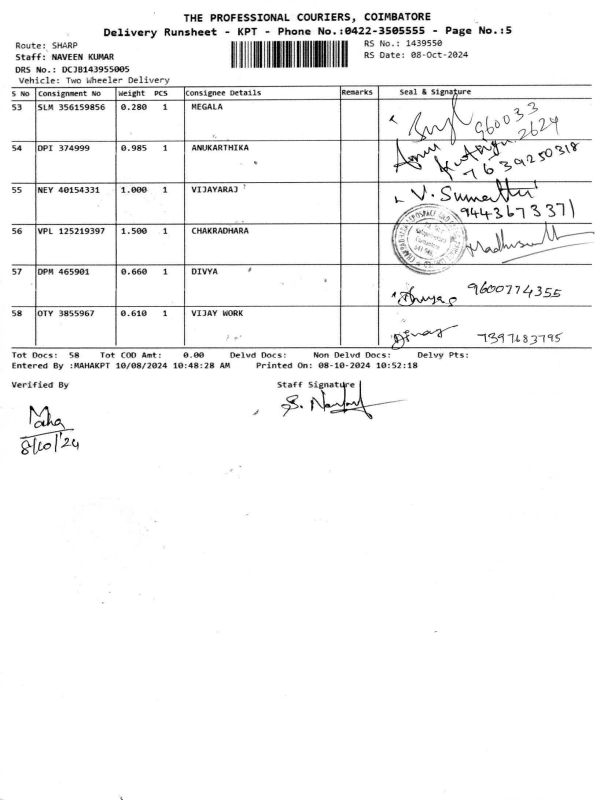 THE PROFESSIONAL COURIERS, COIMBATORE
Delivery Runsheet - KPT - Phone No.:0422-3505555 - Page No.:5
Route: SHARP RS No.: 1439550
Staff: NAVEEN KUMAR RS Date: 08-Oct-2024
DRS No.: DCJB143955005
Vehicle: Two Wheeler Delivery
S No Consignment No Weight PCS Consignee Details Remarks Seal & Signature
53 SLM 356159856 0.280 1 MEGALA 960033
2624
54 DPI 374999 0.985 1 ANUKARTHIKA
7639250318
55 NEY 40154331 1.000 1 VIJAYARAJ V. Sumathi
9443673371
56 VPL 125219397 1.500 1 CHAKRADHARA
57 DPM 465901 0.660 1 DIVYA
9600774355
58 OTY 3855967 0.610 1 VIJAY WORK
7397683795
Tot Docs: 58 Tot COD Amt: 0.00 Delvd Docs: Non Delvd Docs: Delvy Pts:
Entered By :MAHAKPT 10/08/2024 10:48:28 AM Printed On: 08-10-2024 10:52:18
Verified By Staff Signature
Maha
8/10/'24